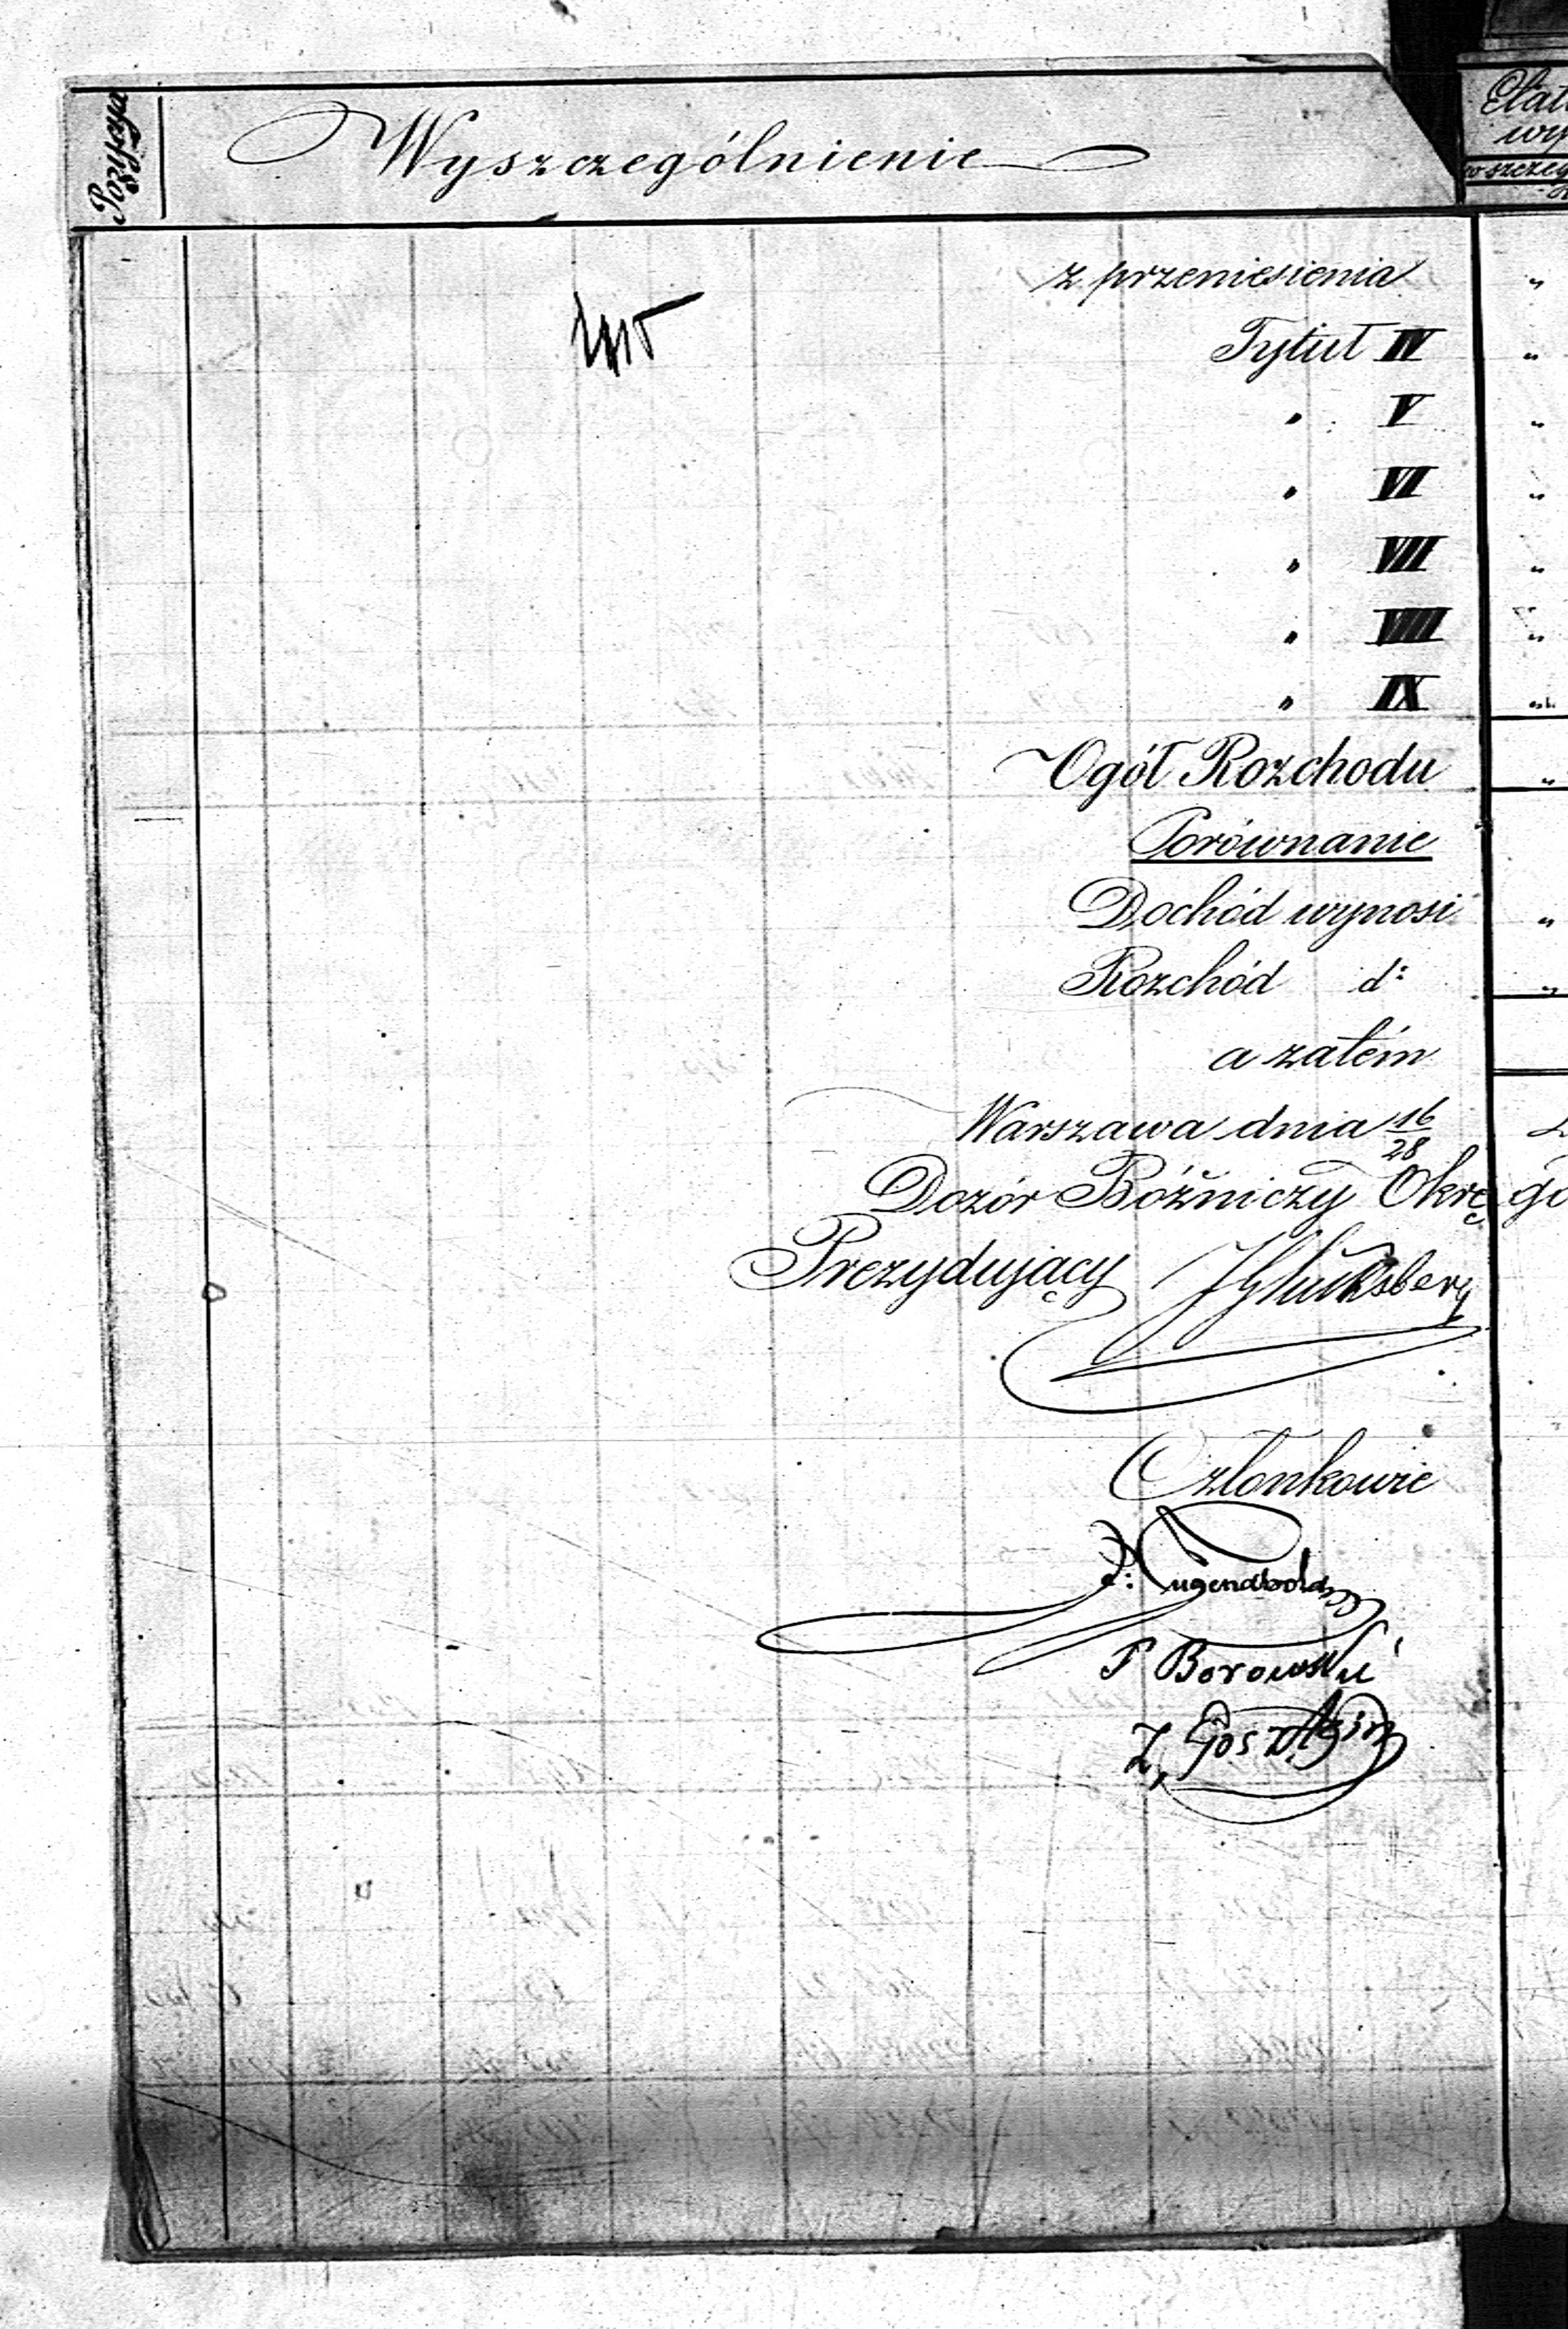 Pozycya
Wyszczególnienie
z przeniesienia
Tytuł IV
" V
" VI
" VII
" VIII
" IX
Ogół Rozchodu
Porównanie
Dochód wynosi
Rozchód d:
a zatém
Warszawa dnia 16/28
Dozór Bóżniczy Okrę go
Prezydujący J Glücksberg
Członkowie
P Borowski